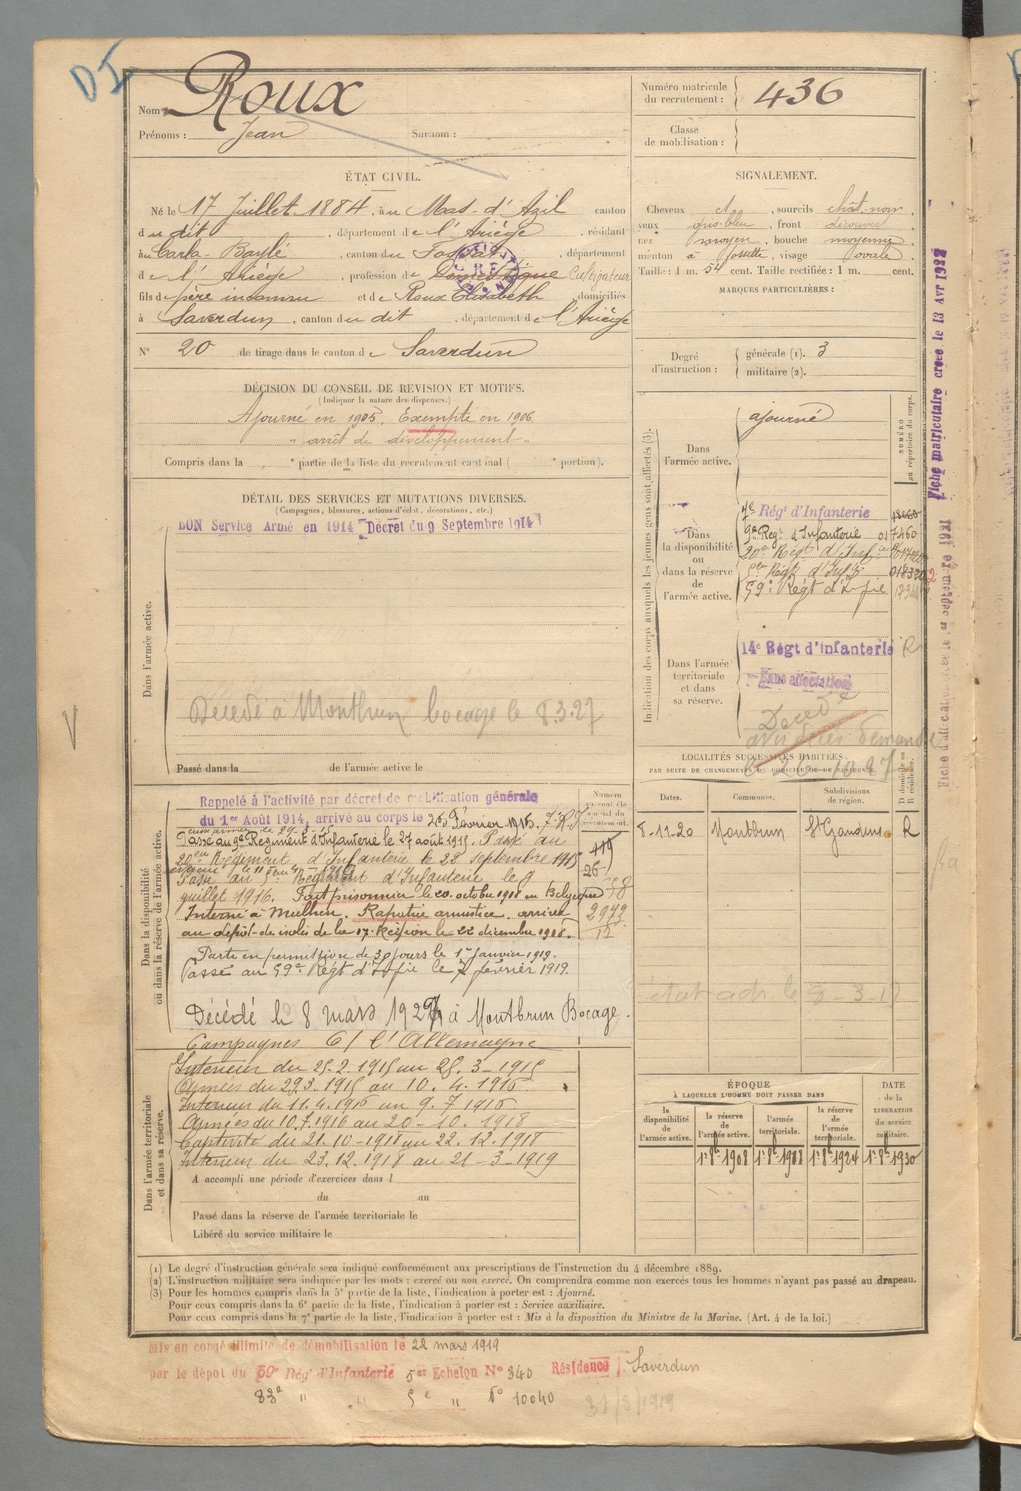 Nom : Roux
Prénoms : Jean Surnom :
Numéro matricule du recrutement : 436
Classe de mobilisation :
ÉTAT CIVIL.
Né le 17 Juillet 1884, au Mas-d'Azil canton
du dit, département de l'Ariège, résidant
à Carla-Bayle, canton du Fossat, département
de l'Ariège, profession de domestique Cultivateur
fils de père inconnu et de Roux Elisabeth, domiciliés
à Saverdun, canton du dit, département de l'Ariège
N° 20 de tirage dans le canton de Saverdun
SIGNALEMENT.
Cheveux et, sourcils chât. noir,
yeux gris-bleu, front découvert
nez moyen, bouche moyenne
menton à fossette, visage ovale.
Taille : 1 m. 54 cent. Taille rectifiée : 1 m. cent.
MARQUES PARTICULIÈRES :
Degré d'instruction : générale (1). 3
militaire (2).
DÉCISION DU CONSEIL DE REVISION ET MOTIFS.
(Indiquer la nature des dispenses.)
Ajourné en 1905. Exempté en 1906
"arrêt de développement"
Compris dans la e partie de la liste du recrutement cantonal ( e portion).
DÉTAIL DES SERVICES ET MUTATIONS DIVERSES.
(Campagnes, blessures, actions d'éclat, décorations, etc.)
BON Service Armé en 1914 Décret du 9 Septembre 1914
Dans l'armée active.
Décédé à Montbrun bocage le 8.3.27
Passé dans la de l'armée active le
Indication des corps auxquels les jeunes gens sont affectés (3).
NUMÉRO au répertoire du corps.
Dans l'armée active. ajourné
Dans la disponibilité ou dans la réserve de l'armée active.
Rég' d'Infanterie
9e Regt d'Infanterie 017460
20e Régt d'Inf ie
5e Régt d'Inf ie
59e Régt d'Inf ie
Dans l'armée territoriale et dans sa réserve.
14e Régt d'infanterie R
Sans affectation
Décédé
Fiche matriculaire créée le 13 Avr 1922
LOCALITÉS SUCCESSIVES HABITÉES
PAR SUITE DE CHANGEMENTS DE DOMICILE OU DE RÉSIDENCE.
Dates. Communes. Subdivisions de région. D domicile ou R résidence.
8-11-20 Montbrun St Gaudens R
Dans la disponibilité ou dans la réserve de l'armée active.
Rappelé à l'activité par décret de mobilisation générale
du 1er Août 1914, arrivé au corps le 25 Février 1915.
Passé au 9e Régiment d'Infanterie le 27 août 1915. Passé au
20e Régiment d'Infanterie le 22 septembre 1915
Passé au 5e Régiment d'Infanterie le 9
juillet 1916. Fait prisonnier le 20 octobre 1918 en Belgique
Interné à Mulhen. Rapatrié armistice. arrivé
au dépôt de isolés de la 17e Région le 22 décembre 1918.
Parti en permission de 30 jours le 1er janvier 1919.
Passé au 59e Régt d'Inf ie le 7 février 1919.
Décédé le 8 mars 1927 à Montbrun Bocage.
Campagnes C/ l'Allemagne
Dans l'armée territoriale et dans sa réserve.
Intérieur du 25.2.1915 au 28.3-1915
Armées du 29.3.1915 au 10.4.1916
Intérieur du 11.4.1916 au 9.7.1916
Armées du 10.7.1916 au 20-10.1918
Captivité du 21.10-1918 au 22.12.1918
Intérieur du 23.12.1918 au 21-3-1919
A accompli une période d'exercices dans l
du au
Passé dans la réserve de l'armée territoriale le
Libéré du service militaire le
ÉPOQUE À LAQUELLE L'HOMME DOIT PASSER DANS
DATE de la LIBÉRATION du service militaire.
la disponibilité de l'armée active. la réserve de l'armée active. l'armée territoriale. la réserve de l'armée territoriale.
1er 8bre 1908 1er 8bre 1918 1er 8bre 1924 1er 8bre 1930
(1) Le degré d'instruction générale sera indiqué conformément aux prescriptions de l'instruction du 4 décembre 1889.
(2) L'instruction militaire sera indiquée par les mots : exercé ou non exercé. On comprendra comme non exercés tous les hommes n'ayant pas passé au drapeau.
(3) Pour les hommes compris dans la 5e partie de la liste, l'indication à porter est : Ajourné.
Pour ceux compris dans la 6e partie de la liste, l'indication à porter est : Service auxiliaire.
Pour ceux compris dans la 7e partie de la liste, l'indication à porter est : Mis à la disposition du Ministre de la Marine. (Art. 4 de la loi.)
Mis en congé illimité de démobilisation le 22 mars 1919
par le dépôt du 59e Rég' d'Infanterie 5e Echelon N° 340 Résidence : Saverdun
83e " " 5e " N° 10040